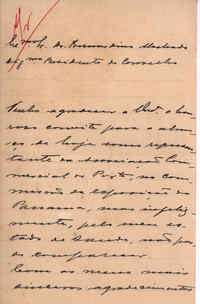 Ex.mo Sr. Dr. Bernardino Machado
Dig.mo Presidente do Conselho
Venho agradecer a V.Ex.a o hon
roso convite para o almo
ço de hoje como represen
tante da Associação Co
mercial do Porto, na Com
missão da exposição do
Panamá, mas infeliz
mente, pelo meu es
tado de saude, não pos
so comparecer.
Com os meus mais
sinceros agradecimentos